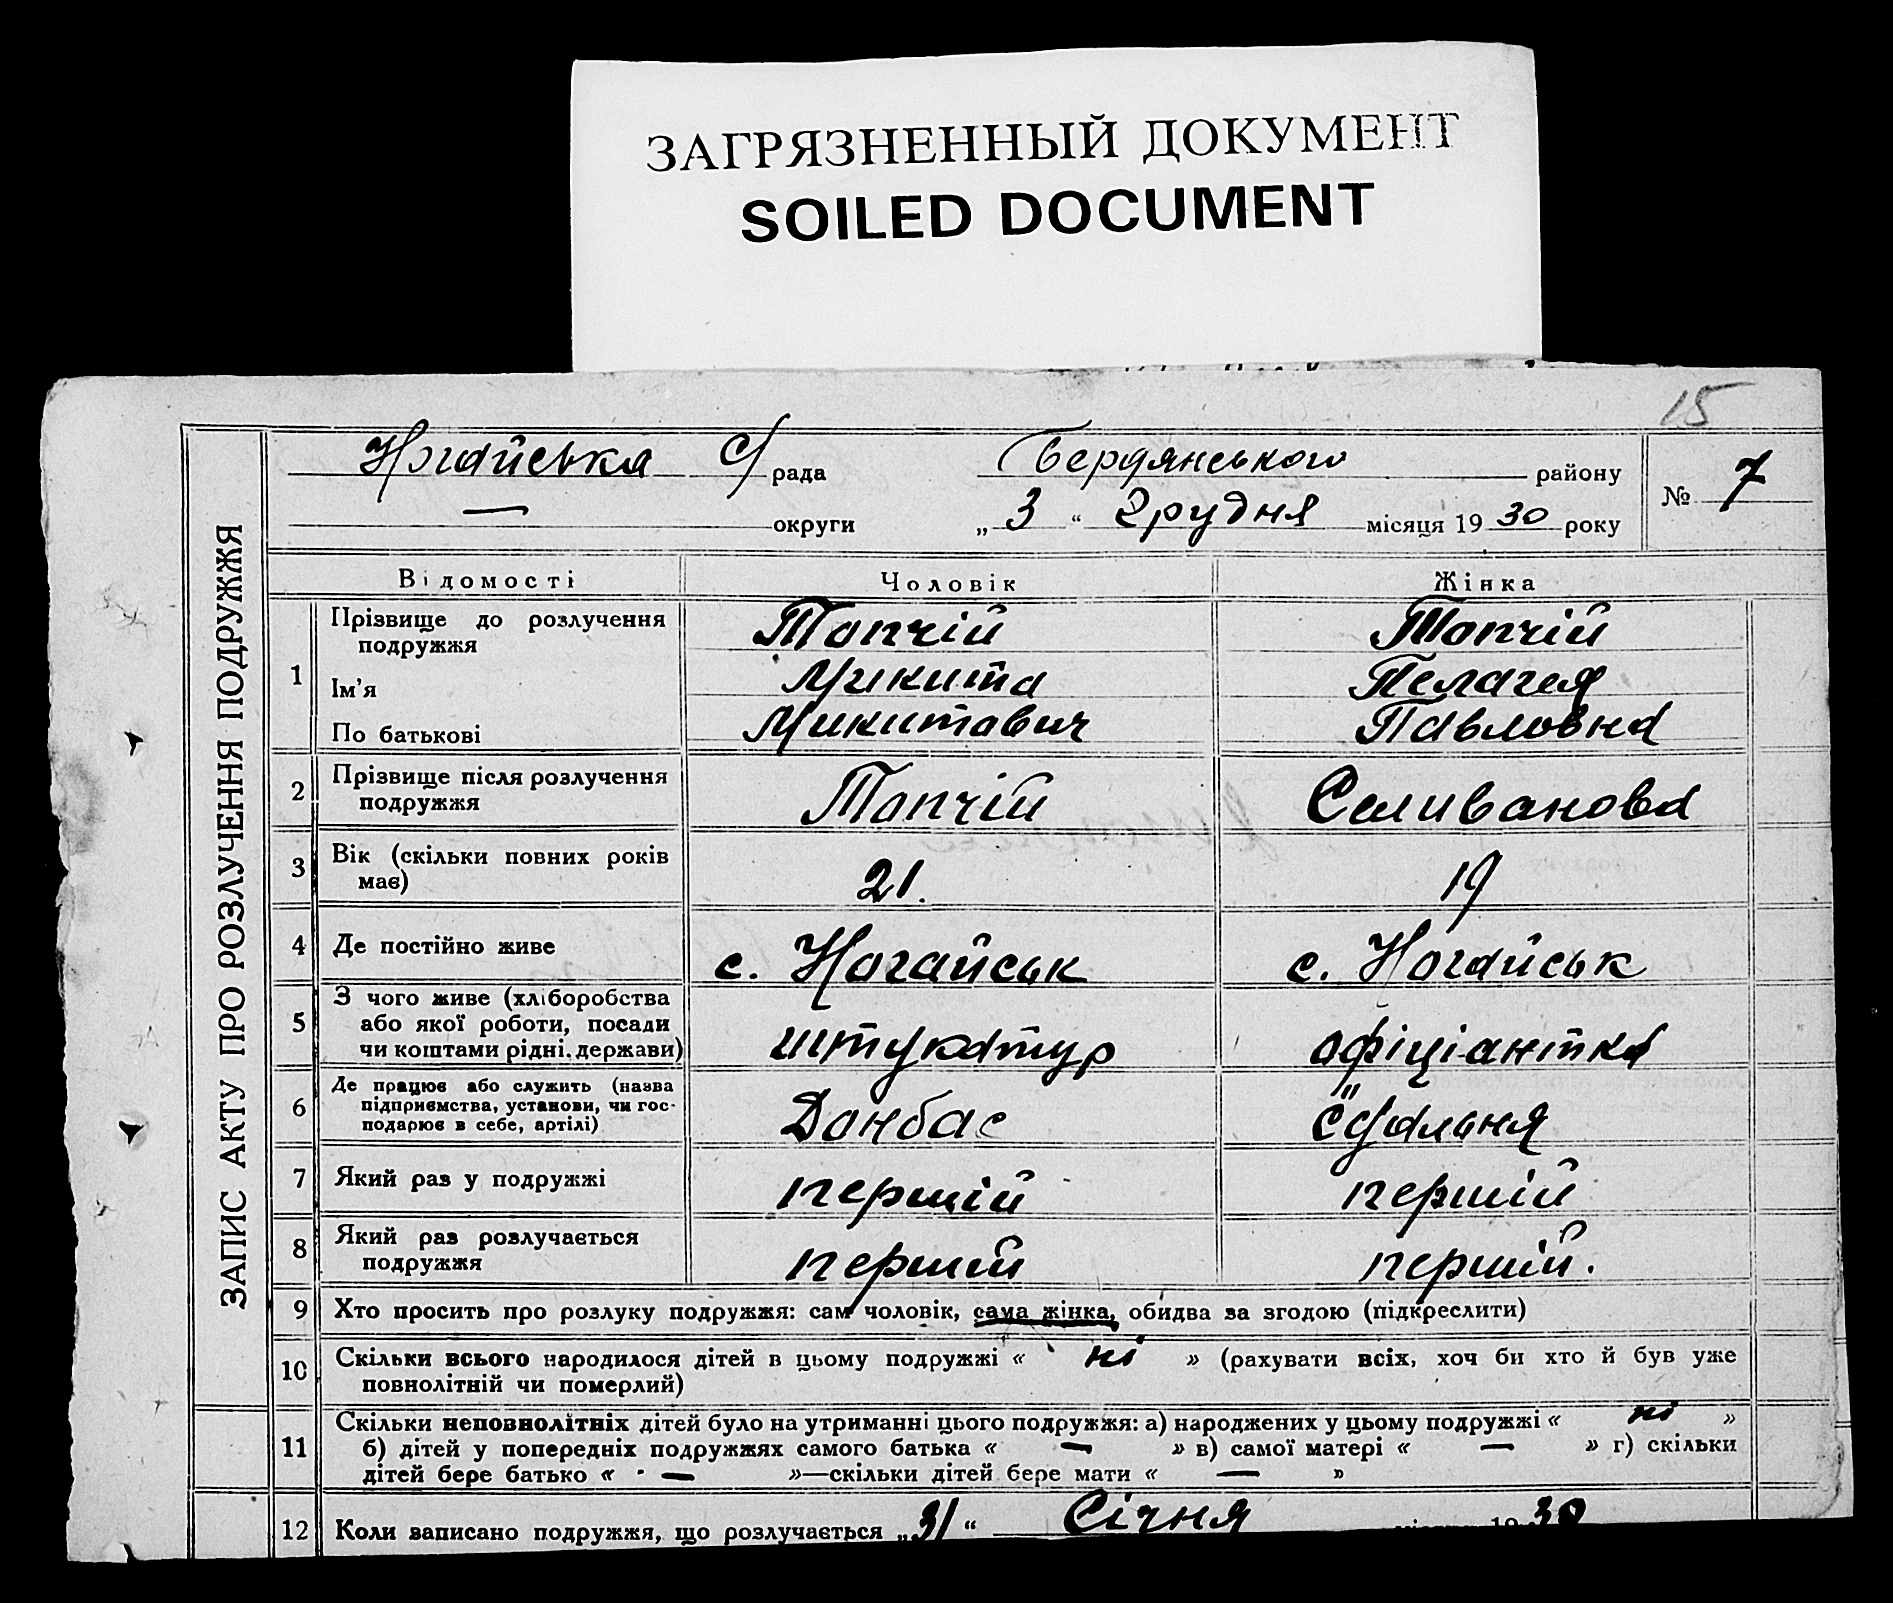 ЗАГРЯЗНЕННЫЙ ДОКУМЕНТ
SOILED DOCUMENT
15
Ногайська С/рада Бердянського району № 7
— округи „3“ грудня місяця 1930 року
ЗАПИС АКТУ ПРО РОЗЛУЧЕННЯ ПОДРУЖЖЯ
Відомості Чоловік Жінка
1 Прізвище до розлучення Топчій Топчій
подружжя
Ім'я Микита Пелагея
По батькові Микитович Павловна
2 Прізвище після розлучення Топчій Селиванова
подружжя
3 Вік (скільки повних років 21. 19
має)
4 Де постійно живе с. Ногайськ с. Ногайськ
5 З чого живе (хліборобства
або якої роботи, посади штукатур офіціантка
чи коштами рідні. держави)
6 Де працює або служить (назва
підприємства, установи, чи гос- Донбас
подарює в себе, артілі)
7 Який раз у подружжі першій першій
8 Який раз розлучається першій першій.
подружжя
9 Хто просить про розлуку подружжя: сам чоловік, сама жінка, обидва за згодою (підкреслити)
10 Скільки всього народилося дітей в цьому подружжі « ні » (рахувати всіх, хоч би хто й був уже
повнолітній чи померлий)
11 Скільки неповнолітніх дітей було на утриманні цього подружжя: а) народжених у цьому подружжі « ні »
б) дітей у попередніх подружжях самого батька « — » в) самої матері « — » г) скільки
дітей бере батько « — »—скільки дітей бере мати « — »
12 Коли записано подружжя, що розлучається „31“ Січня місяця 1930